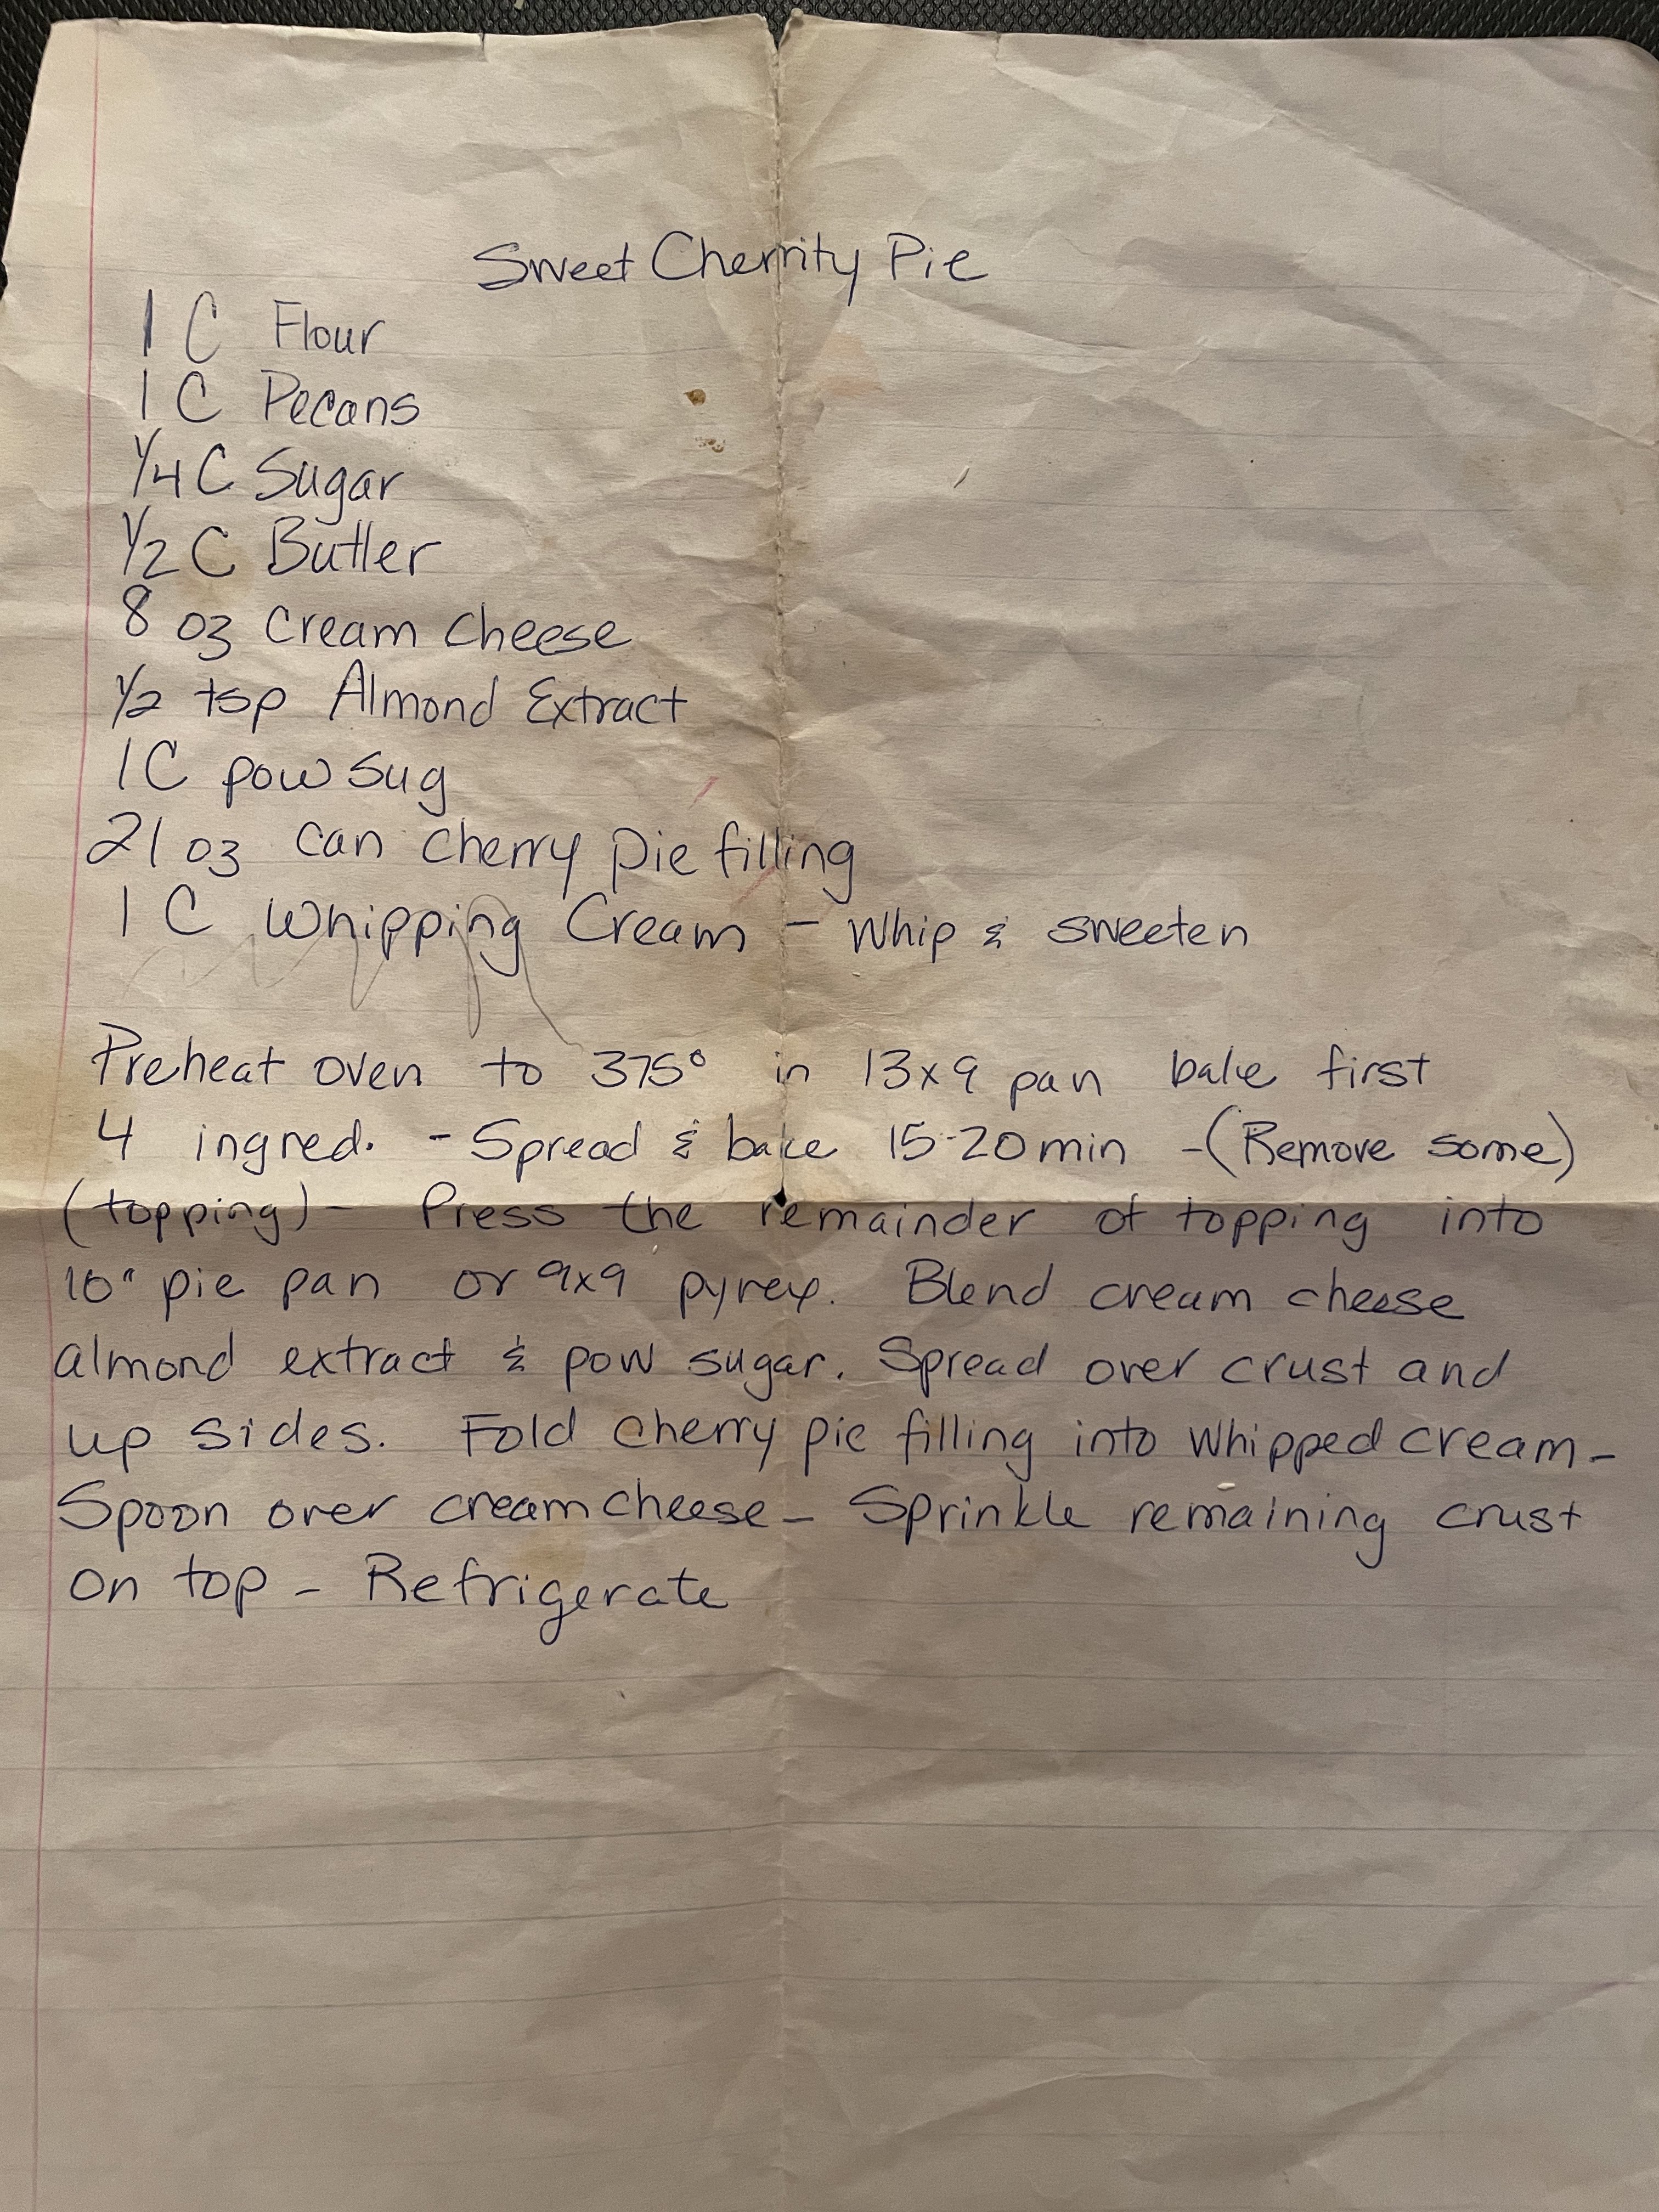 Sweet Cherrity Pie
1 C Flour
1 C Pecans
1/4 C Sugar
1/2 C Butter
8 oz Cream Cheese
1/2 tsp Almond Extract
1 C pow sug
21 oz can cherry pie filling
1 C Whipping Cream - Whip & sweeten
Preheat oven to 375° in 13x9 pan bake first
4 ingred. - Spread & bake 15-20 min - (Remove some)
(topping) - Press the remainder of topping into
10" pie pan or 9x9 pyrex. Blend cream cheese
almond extract & pow sugar. Spread over crust and
up sides. Fold cherry pie filling into whipped cream -
Spoon over cream cheese - Sprinkle remaining crust
on top - Refrigerate